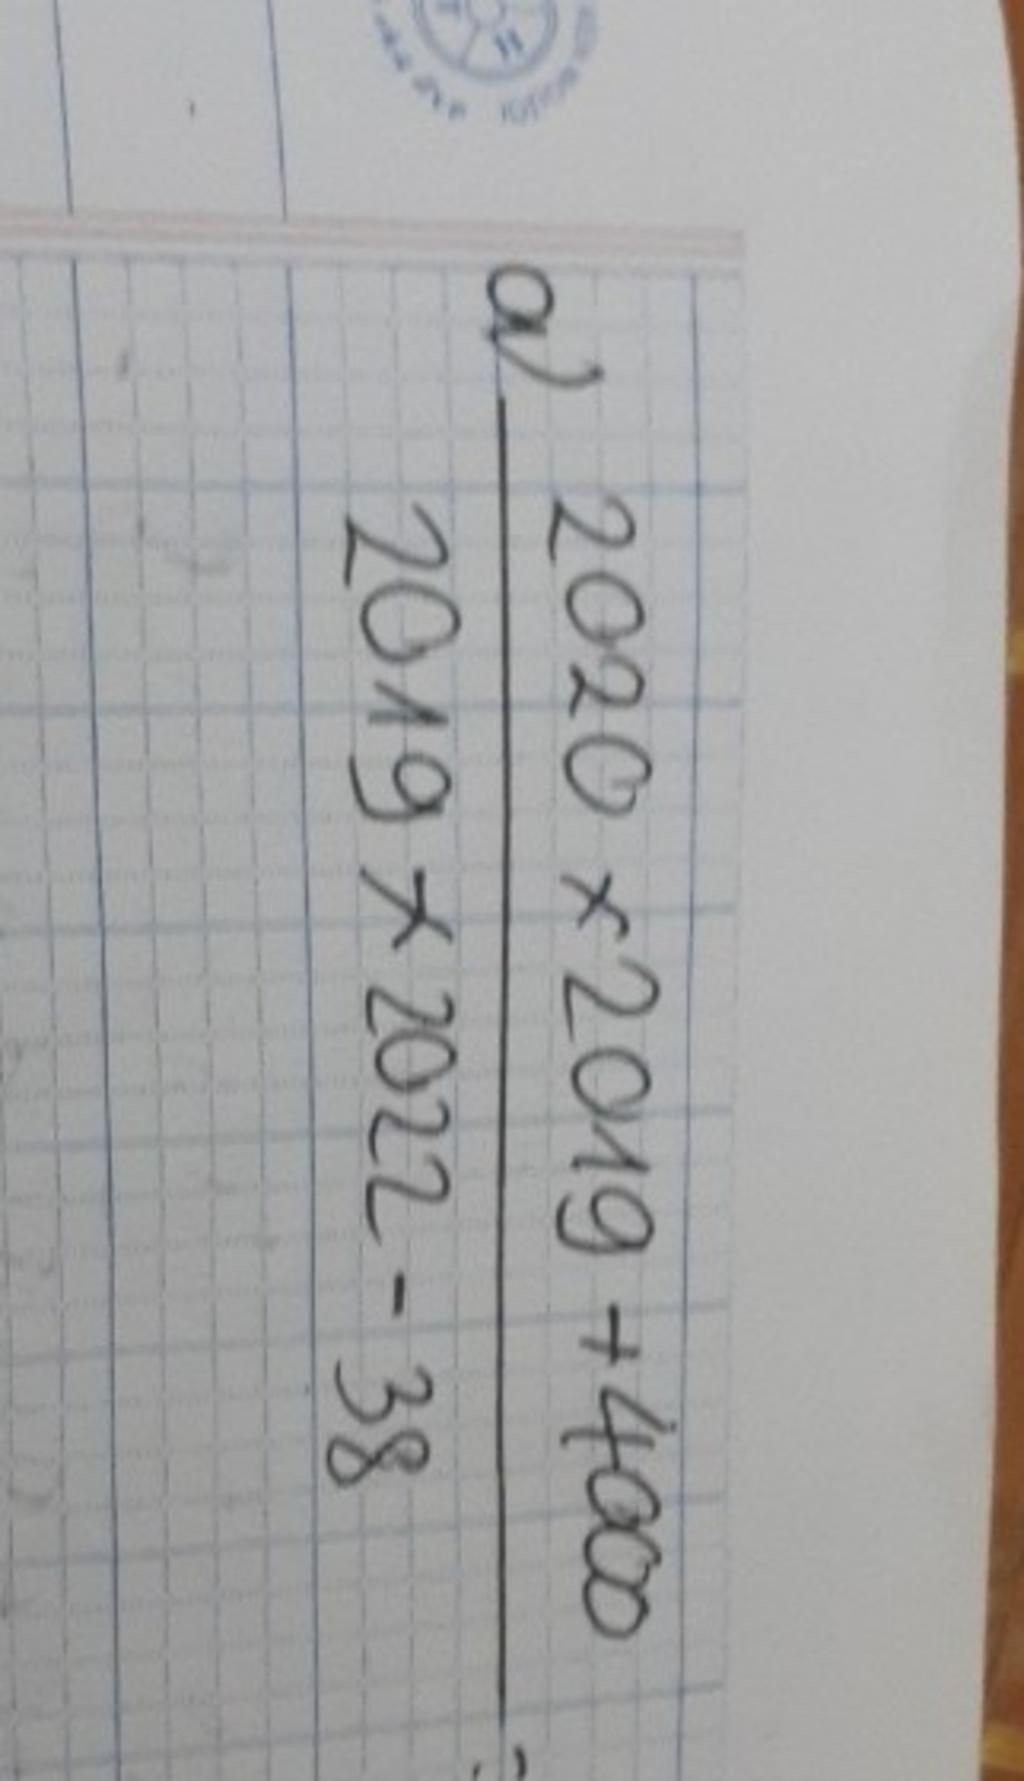 a) 2020 x 2019 + 4000
2019 x 2022 - 38